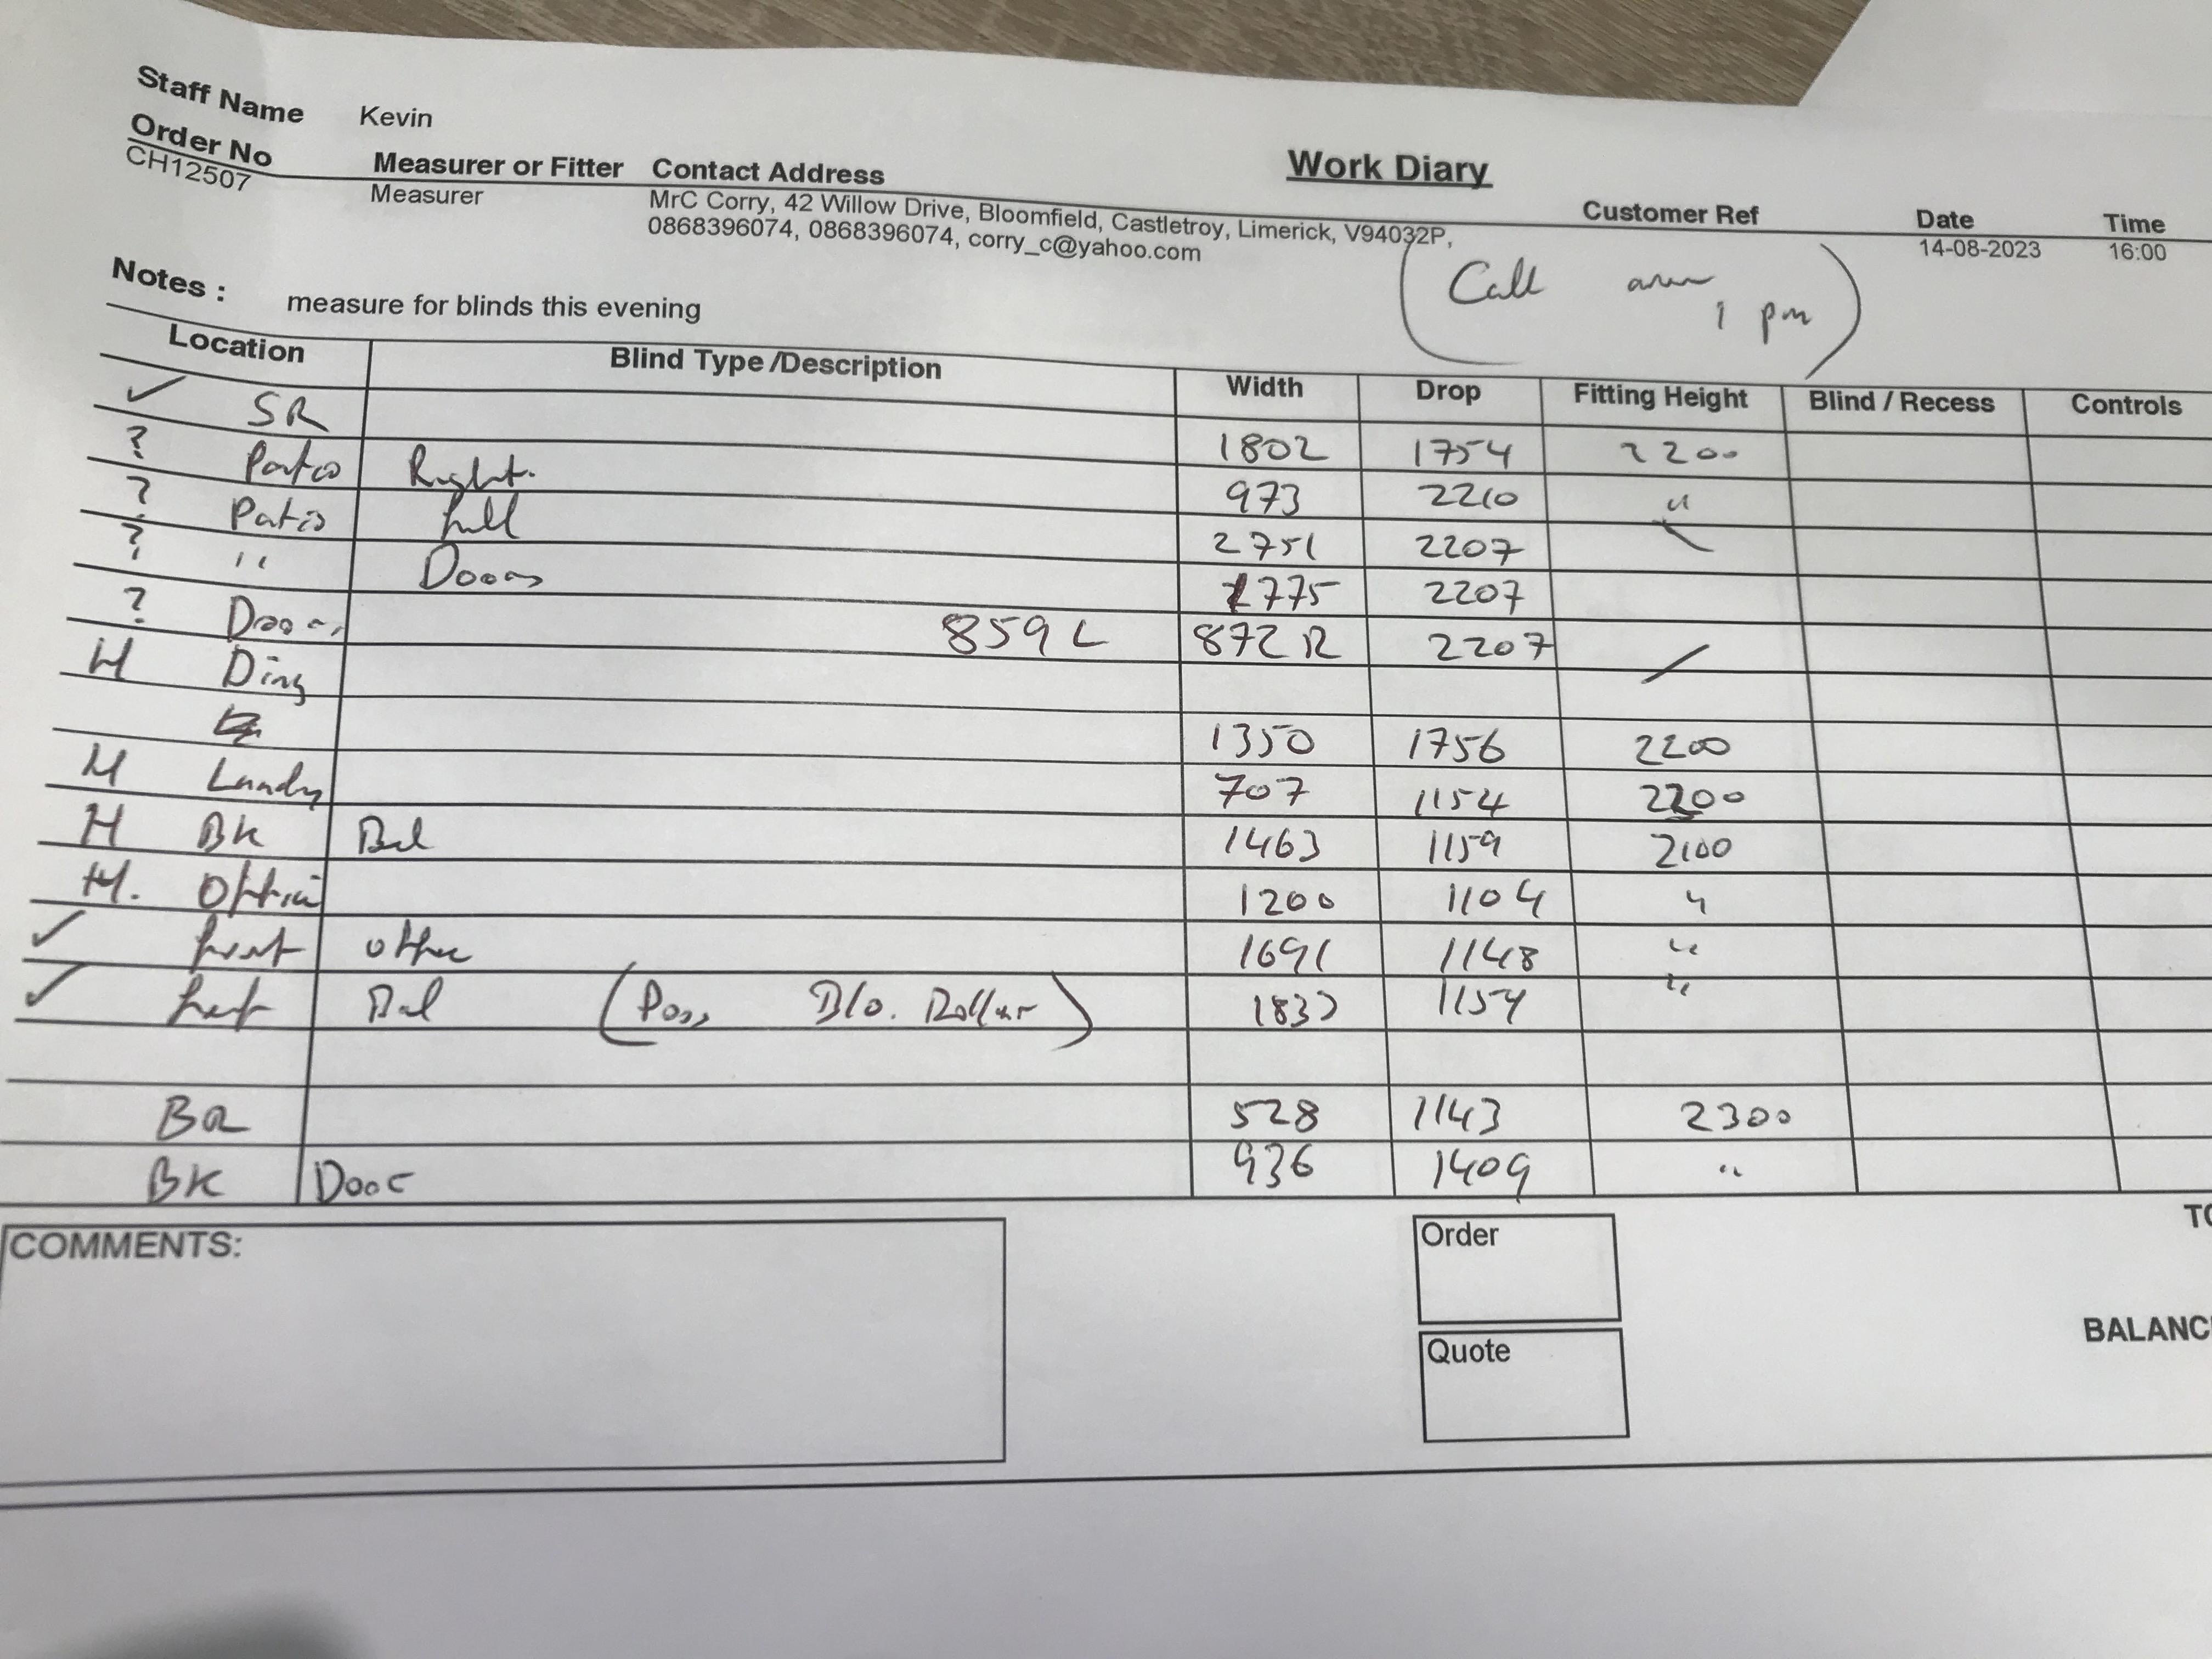 Staff Name Kevin
Work Diary
Order No Measurer or Fitter Contact Address Customer Ref Date Time
CH12507 Measurer MrC Corry, 42 Willow Drive, Bloomfield, Castletroy, Limerick, V94032P, 14-08-2023 16:00
0868396074, 0868396074, corry_c@yahoo.com
Call
1 pm
Notes : measure for blinds this evening
Location Blind Type /Description Width Drop Fitting Height Blind / Recess Controls
✓ SR 1802 1754 2200
? Patio Right. 973 2210 "
? Patio full 2751 2207
? " Doors 1775 2207
? Doors 859 L 872 R 2207
H Ding
1350 1756 2200
H Laundry 707 1154 2200
H BK Bed 1463 1159 2100
H. 1200 1104 "
✓ front office 1691 1148 "
✓ front Bed (Poss Blo. Roller) 1154 "
528 1143 2300
BK Door 936 1409 "
COMMENTS:
Order
Quote
TO
BALANC